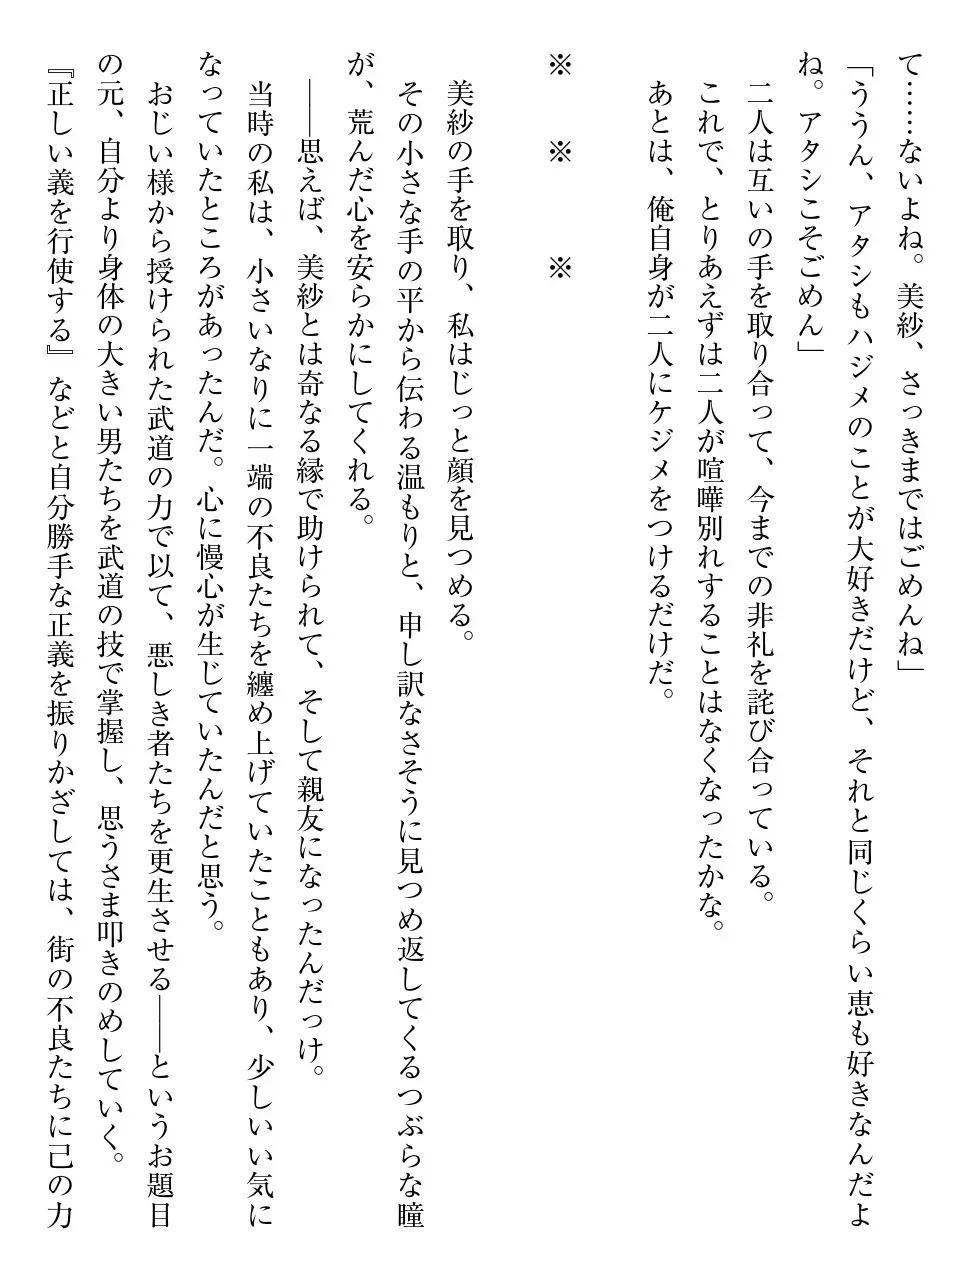 て……ないよね。美紗、さっきまではごめんね」
「ううん、アタシもハジメのことが大好きだけど、それと同じくらい恵も好きなんだよ
ね。アタシこそごめん」
二人は互いの手を取り合って、今までの非礼を詫び合っている。
これで、とりあえずは二人が喧嘩別れすることはなくなったかな。
あとは、俺自身が二人にケジメをつけるだけだ。
※　※　※
美紗の手を取り、私はじっと顔を見つめる。
その小さな手の平から伝わる温もりと、申し訳なさそうに見つめ返してくるつぶらな瞳
が、荒んだ心を安らかにしてくれる。
――思えば、美紗とは奇なる縁で助けられて、そして親友になったんだっけ。
当時の私は、小さいなりに一端の不良たちを纏め上げていたこともあり、少しいい気に
なっていたところがあったんだ。心に慢心が生じていたんだと思う。
おじい様から授けられた武道の力で以て、悪しき者たちを更生させる――というお題目
の元、自分より身体の大きい男たちを武道の技で掌握し、思うさま叩きのめしていく。
『正しい義を行使する』などと自分勝手な正義を振りかざしては、街の不良たちに己の力